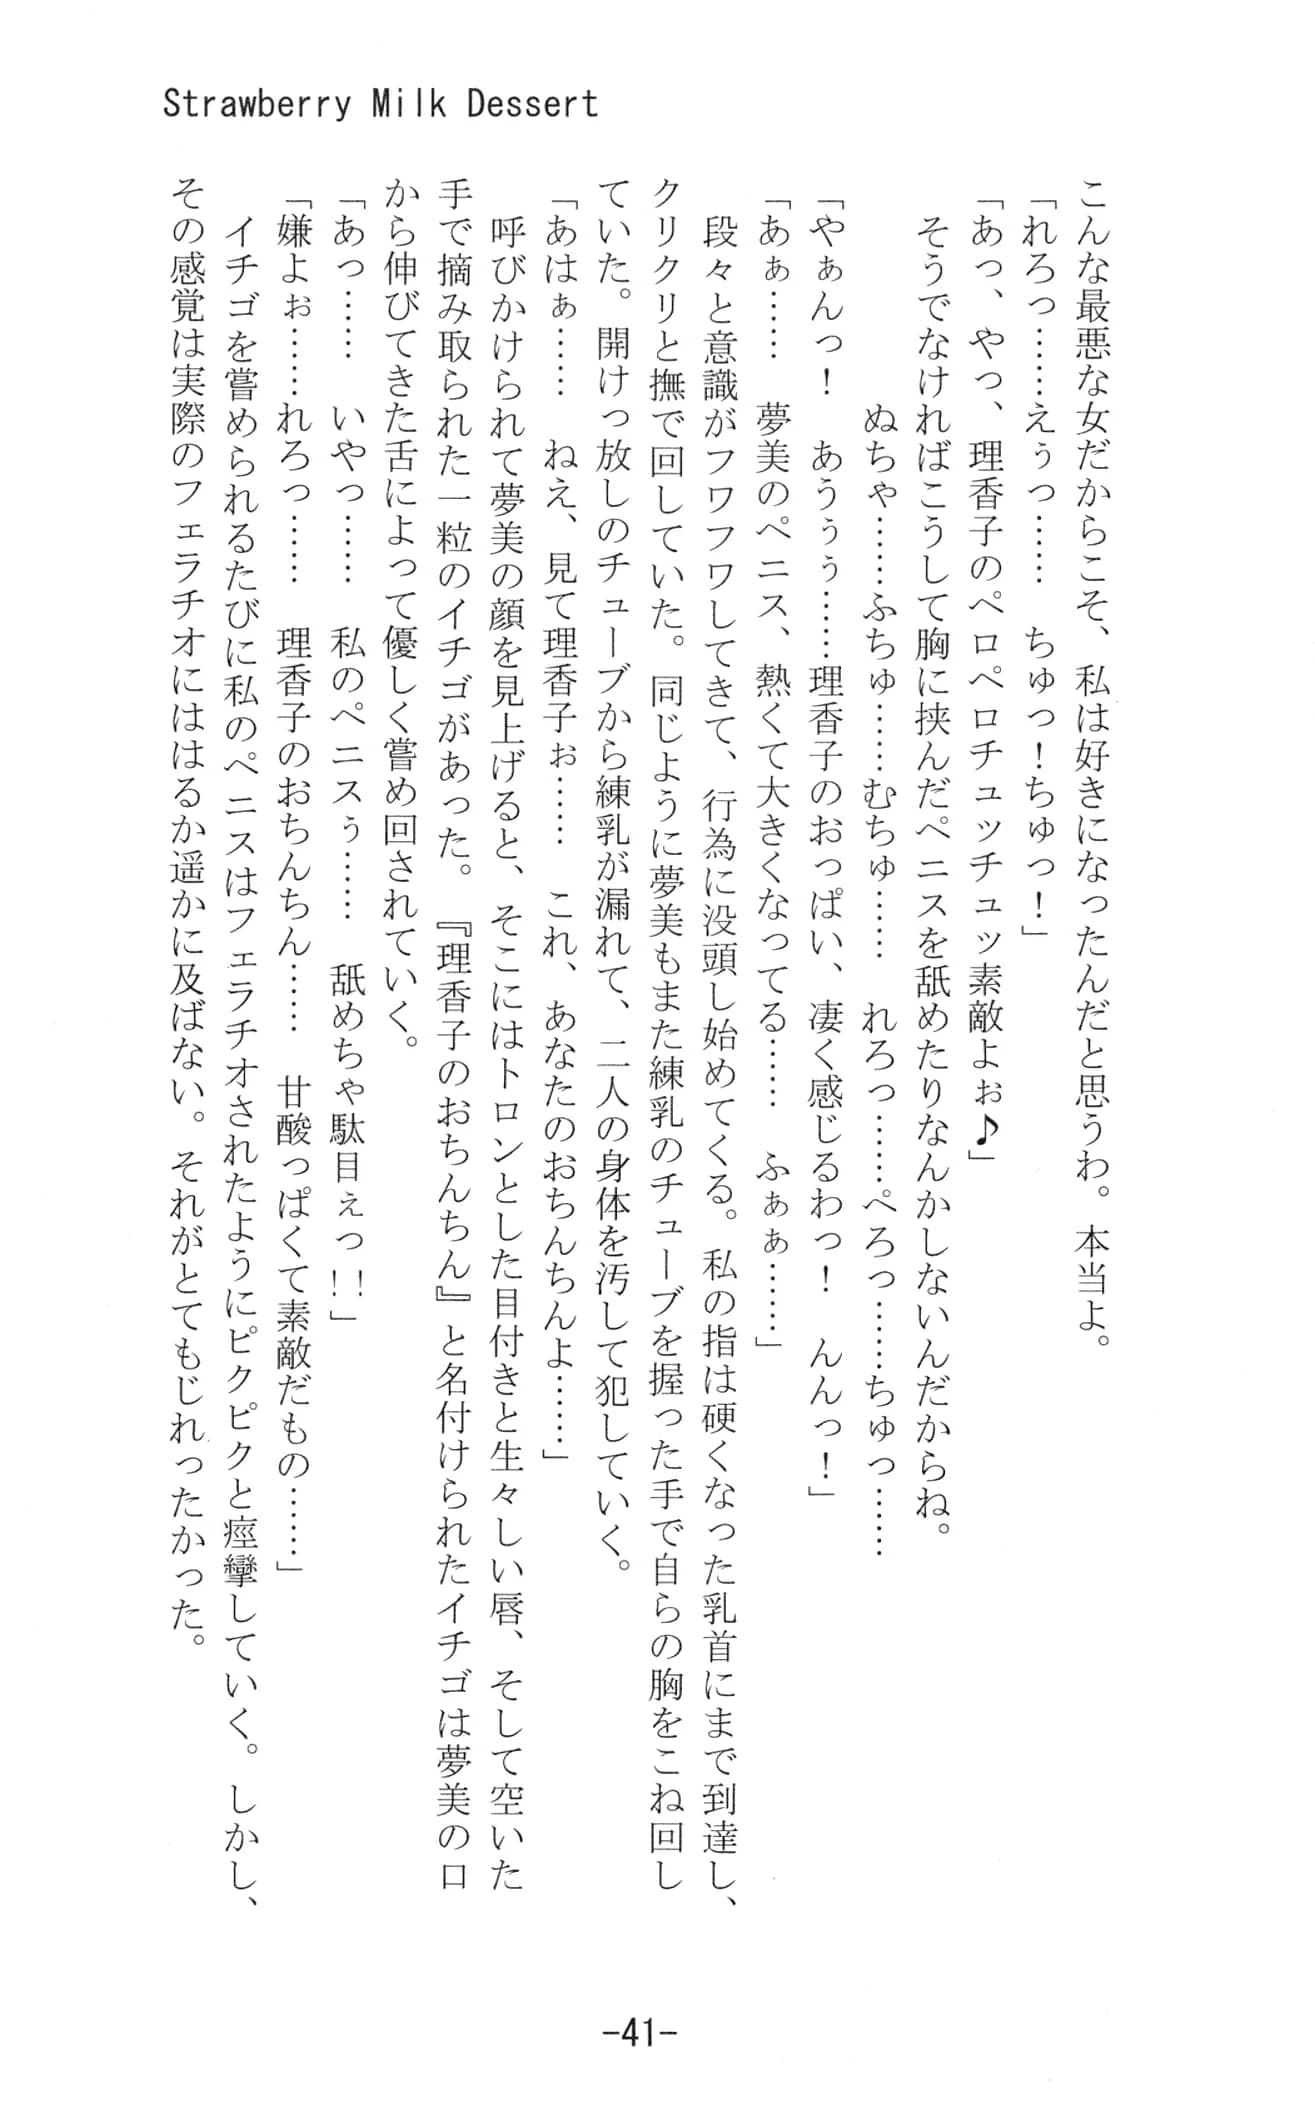 Strawberry Milk Dessert
こんな最悪な女だからこそ、私は好きになったんだと思うわ。本当よ。
「れろっ……えぅっ……　ちゅっ！ちゅっ！」
「あっ、やっ、理香子のペロペロチュッチュッ素敵よぉ♪」
そうでなければこうして胸に挟んだペニスを舐めたりなんかしないんだからね。
ぬちゃ……ふちゅ……むちゅ……　れろっ……ぺろっ……ちゅっ……
「やぁんっ！　あうぅぅ……理香子のおっぱい、凄く感じるわっ！　んんっ！」
「あぁ……　夢美のペニス、熱くて大きくなってる……　ふぁぁ……」
段々と意識がフワフワしてきて、行為に没頭し始めてくる。私の指は硬くなった乳首にまで到達し、
クリクリと撫で回していた。同じように夢美もまた練乳のチューブを握った手で自らの胸をこね回し
ていた。開けっ放しのチューブから練乳が漏れて、二人の身体を汚して犯していく。
「あはぁ……　ねえ、見て理香子ぉ……　これ、あなたのおちんちんよ……」
呼びかけられて夢美の顔を見上げると、そこにはトロンとした目付きと生々しい唇、そして空いた
手で摘み取られた一粒のイチゴがあった。『理香子のおちんちん』と名付けられたイチゴは夢美の口
から伸びてきた舌によって優しく嘗め回されていく。
「あっ……　いやっ……　私のペニスぅ……　舐めちゃ駄目ぇっ!!」
「嫌よぉ……れろっ……　理香子のおちんちん……　甘酸っぱくて素敵だもの……」
イチゴを嘗められるたびに私のペニスはフェラチオされたようにピクピクと痙攣していく。しかし、
その感覚は実際のフェラチオにははるか遥かに及ばない。それがとてもじれったかった。
-41-